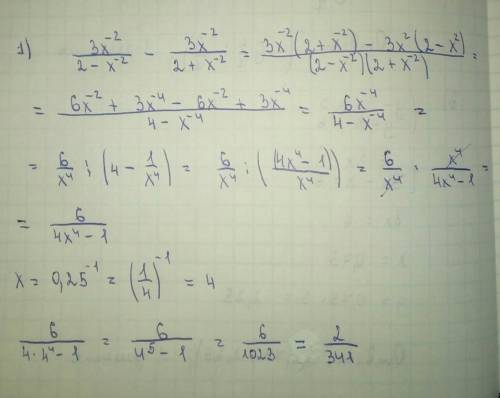 1) 3x⁻²/(2 - x⁻²) - 3x⁻²/(2 + x⁻²) = (3x⁻²(2 + x⁻²) - 3x²(2 - x²))/((2 - x⁻²)(2 + x⁻²)) =
= (6x⁻² + 3x⁻⁴ - 6x⁻² + 3x⁻⁴)/(4 - x⁻⁴) = 6x⁻⁴/(4 - x⁻⁴) =
= 6/x⁴ : (4 - 1/x⁴) = 6/x⁴ : ((4x⁴ - 1)/x⁴) = 6/x⁴ · x⁴/(4x⁴ - 1) =
= 6/(4x⁴ - 1)
x = 0,25⁻¹ = (1/4)⁻¹ = 4
6/(4·4⁴ - 1) = 6/(4⁵ - 1) = 6/1023 = 2/341